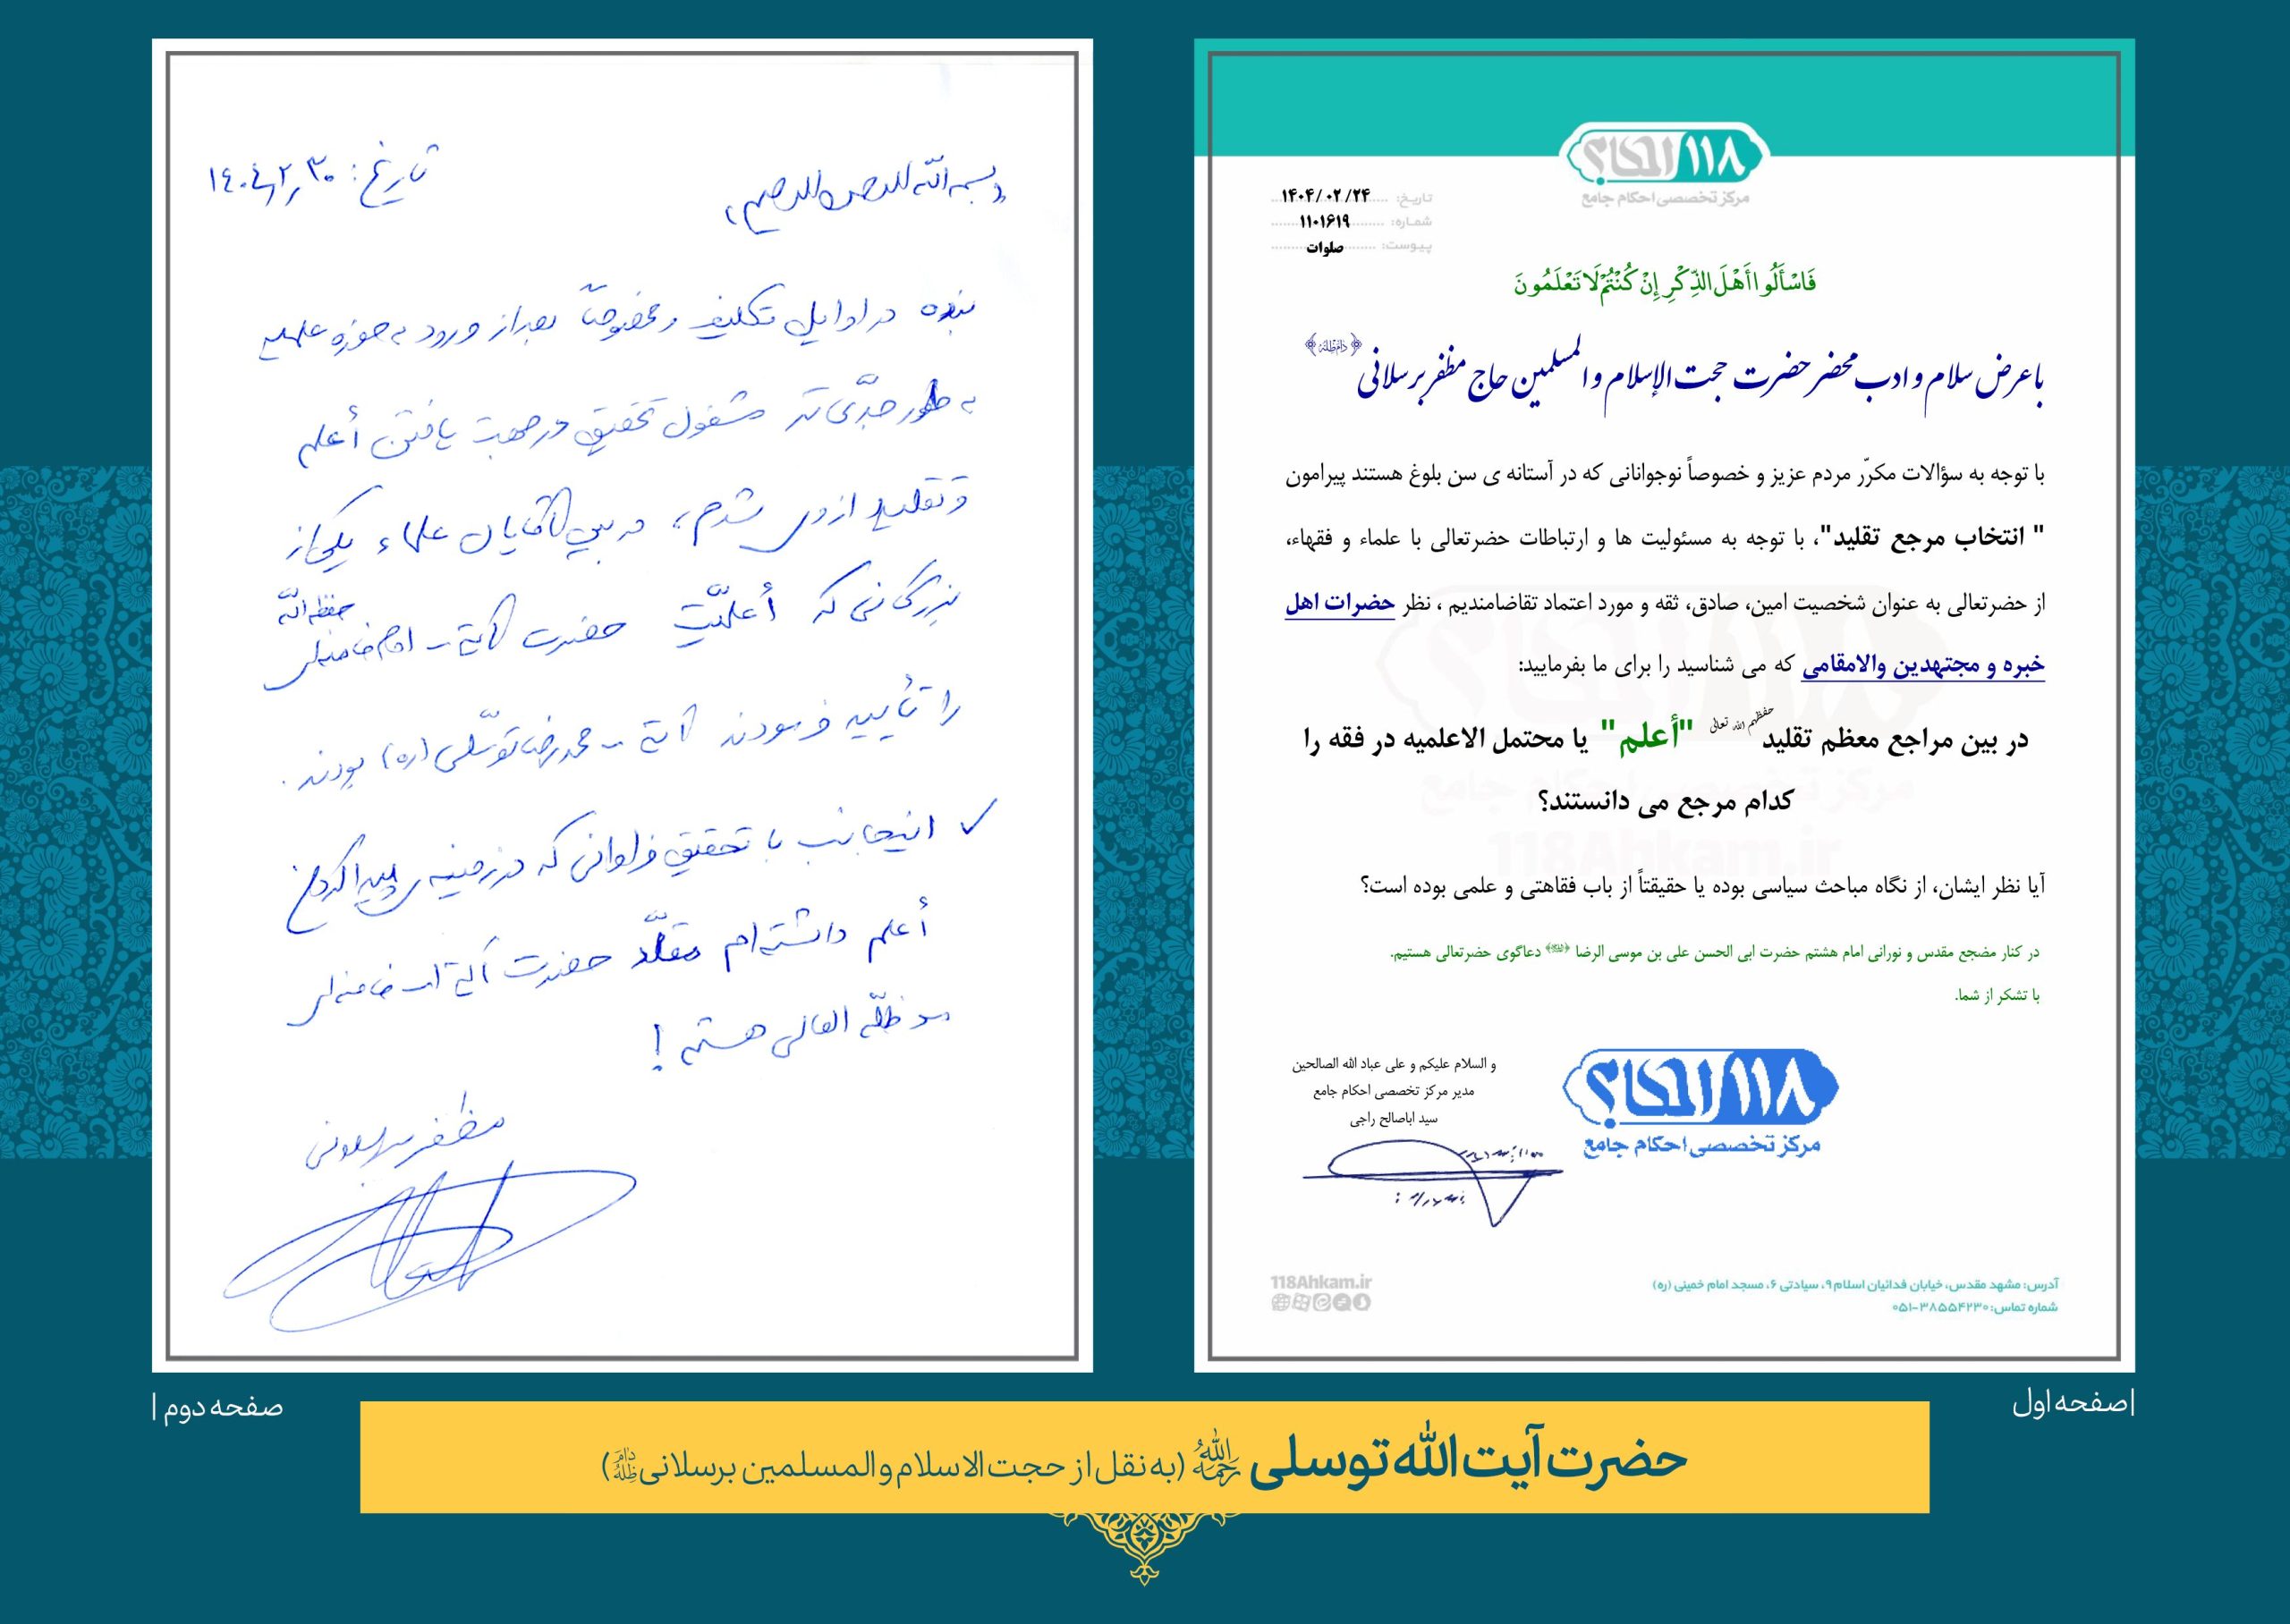 ۱۱۸ احکام
مرکز تخصصی احکام جامع
تاریخ: ۱۴۰۴/۰۲/۲۴
شماره: ۱۱۰۱۶۱۹
پیوست: صلوات
فَاسْأَلُوا أَهْلَ الذِّكْرِ إِنْ كُنْتُمْ لَا تَعْلَمُونَ
با عرض سلام و ادب محضر حضرت حجت الإسلام و المسلمین حاج مظفر برسلانی ﴿دام ظله﴾
با توجه به سؤالات مکرّر مردم عزیز و خصوصاً نوجوانانی که در آستانه ی سن بلوغ هستند پیرامون
" انتخاب مرجع تقلید"، با توجه به مسئولیت ها و ارتباطات حضرتعالی با علماء و فقهاء،
از حضرتعالی به عنوان شخصیت امین، صادق، ثقه و مورد اعتماد تقاضامندیم ، نظر حضرات اهل
خبره و مجتهدین والامقامی که می شناسید را برای ما بفرمایید:
در بین مراجع معظم تقلید حفظهم الله تعالی "أعلم" یا محتمل الاعلمیه در فقه را
کدام مرجع می دانستند؟
آیا نظر ایشان، از نگاه مباحث سیاسی بوده یا حقیقتاً از باب فقاهتی و علمی بوده است؟
در کنار مضجع مقدس و نورانی امام هشتم حضرت ابی الحسن علی بن موسی الرضا دعاگوی حضرتعالی هستیم.
با تشکر از شما.
و السلام علیکم و علی عباد الله الصالحین
مدیر مرکز تخصصی احکام جامع
سید اباصالح راجی
۱۱۸ احکام
مرکز تخصصی احکام جامع
مرکز تخصصی احکام جامع
118Ahkam.ir
آدرس: مشهد مقدس، خیابان فدائیان اسلام ۹، سیادتی ۶، مسجد امام خمینی (ره)
شماره تماس: ۰۵۱-۳۸۵۵۴۲۳۰
118Ahkam.ir
|صفحه اول
بسم الله الرحمن الرحیم
تاریخ: ۱۴۰۴/۲/۳۰
بنده در اوایل تکلیف و مخصوصاً بعد از ورود به حوزه علمیه
به طور جدّی تر مشغول تحقیق در جهت یافتن أعلم
و تقلید از وی شدم، در بین آقایان علماء یکی از
بزرگانی که أعلمیّت حضرت آیة ـ امام خامنه ای حفظه الله
را تأیید فرمودند آیة ـ محمدرضا توسّلی (ره) بودند.
✓ اینجانب با تحقیق فراوانی که در زمینه ی پیدا کردن
أعلم داشته ام مقلّد حضرت آیة الله خامنه ای
مد ظلّه العالی هستم!
مظفر برسلانی
صفحه دوم |
حضرت آیت الله توسلی رحمه الله (به نقل از حجت الاسلام والمسلمین برسلانی دام ظله)